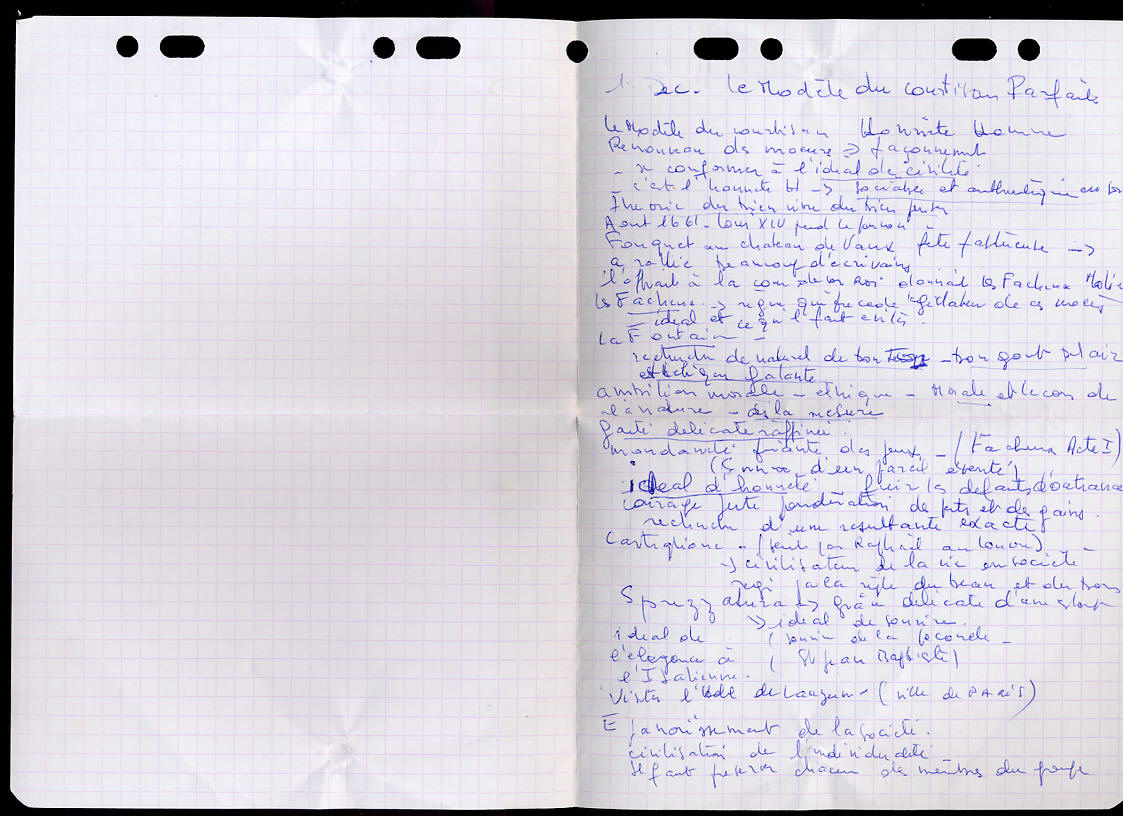 1. Dec. le Modèle du courtisan Parfait
le Modèle du courtisan Honnête Homme
Renouveau des moeurs => façonnement
- se conformer à l'idéal de civilité
- c'est l'honnête H -> sociable et authentique en soi
théorie du bien vivre du bien parler
Aout 1661 - Louis XIV prend le pouvoir
Fouquet au chateau de Vaux fête fastueuse ->
a rallié beaucoup d'écrivains
l'offrait à la cour de son Roi donnait les Facheux Molière
les Facheux -> de ces moeurs
idéal et ce qu'il faut éviter.
La Fontaine -
recherche de naturel de bon - bon gout plaire
esthétique galante
ambition morale - éthique - Morale et leçon de
la nature - de la mesure
gaité délicate raffinée.
mondanité friante des jeux - (Facheux Acte I)
( d'un pareil éventé)
idéal d'honneté - fuir les défauts d'outrance
courage juste pondération de pertes et de gains.
recherche d'une résultante exacte
Castiglione - (peint par Raphaël au Louvre) -
-> civilisateur de la vie en société
régi par la règle du beau et du bon
Sprezzatura -> grâce délicate d'une
-> idéal de sourire.
idéal de ( sourire de la Joconde -
l'élégance à ( St Jean Baptiste)
l'Italienne.
Visiter l'Hotel de Lauzun - (ville de PARIS)
Epanouissement de la société.
civilisation de l'individualité -
Il faut préserver chacun des membres du groupe